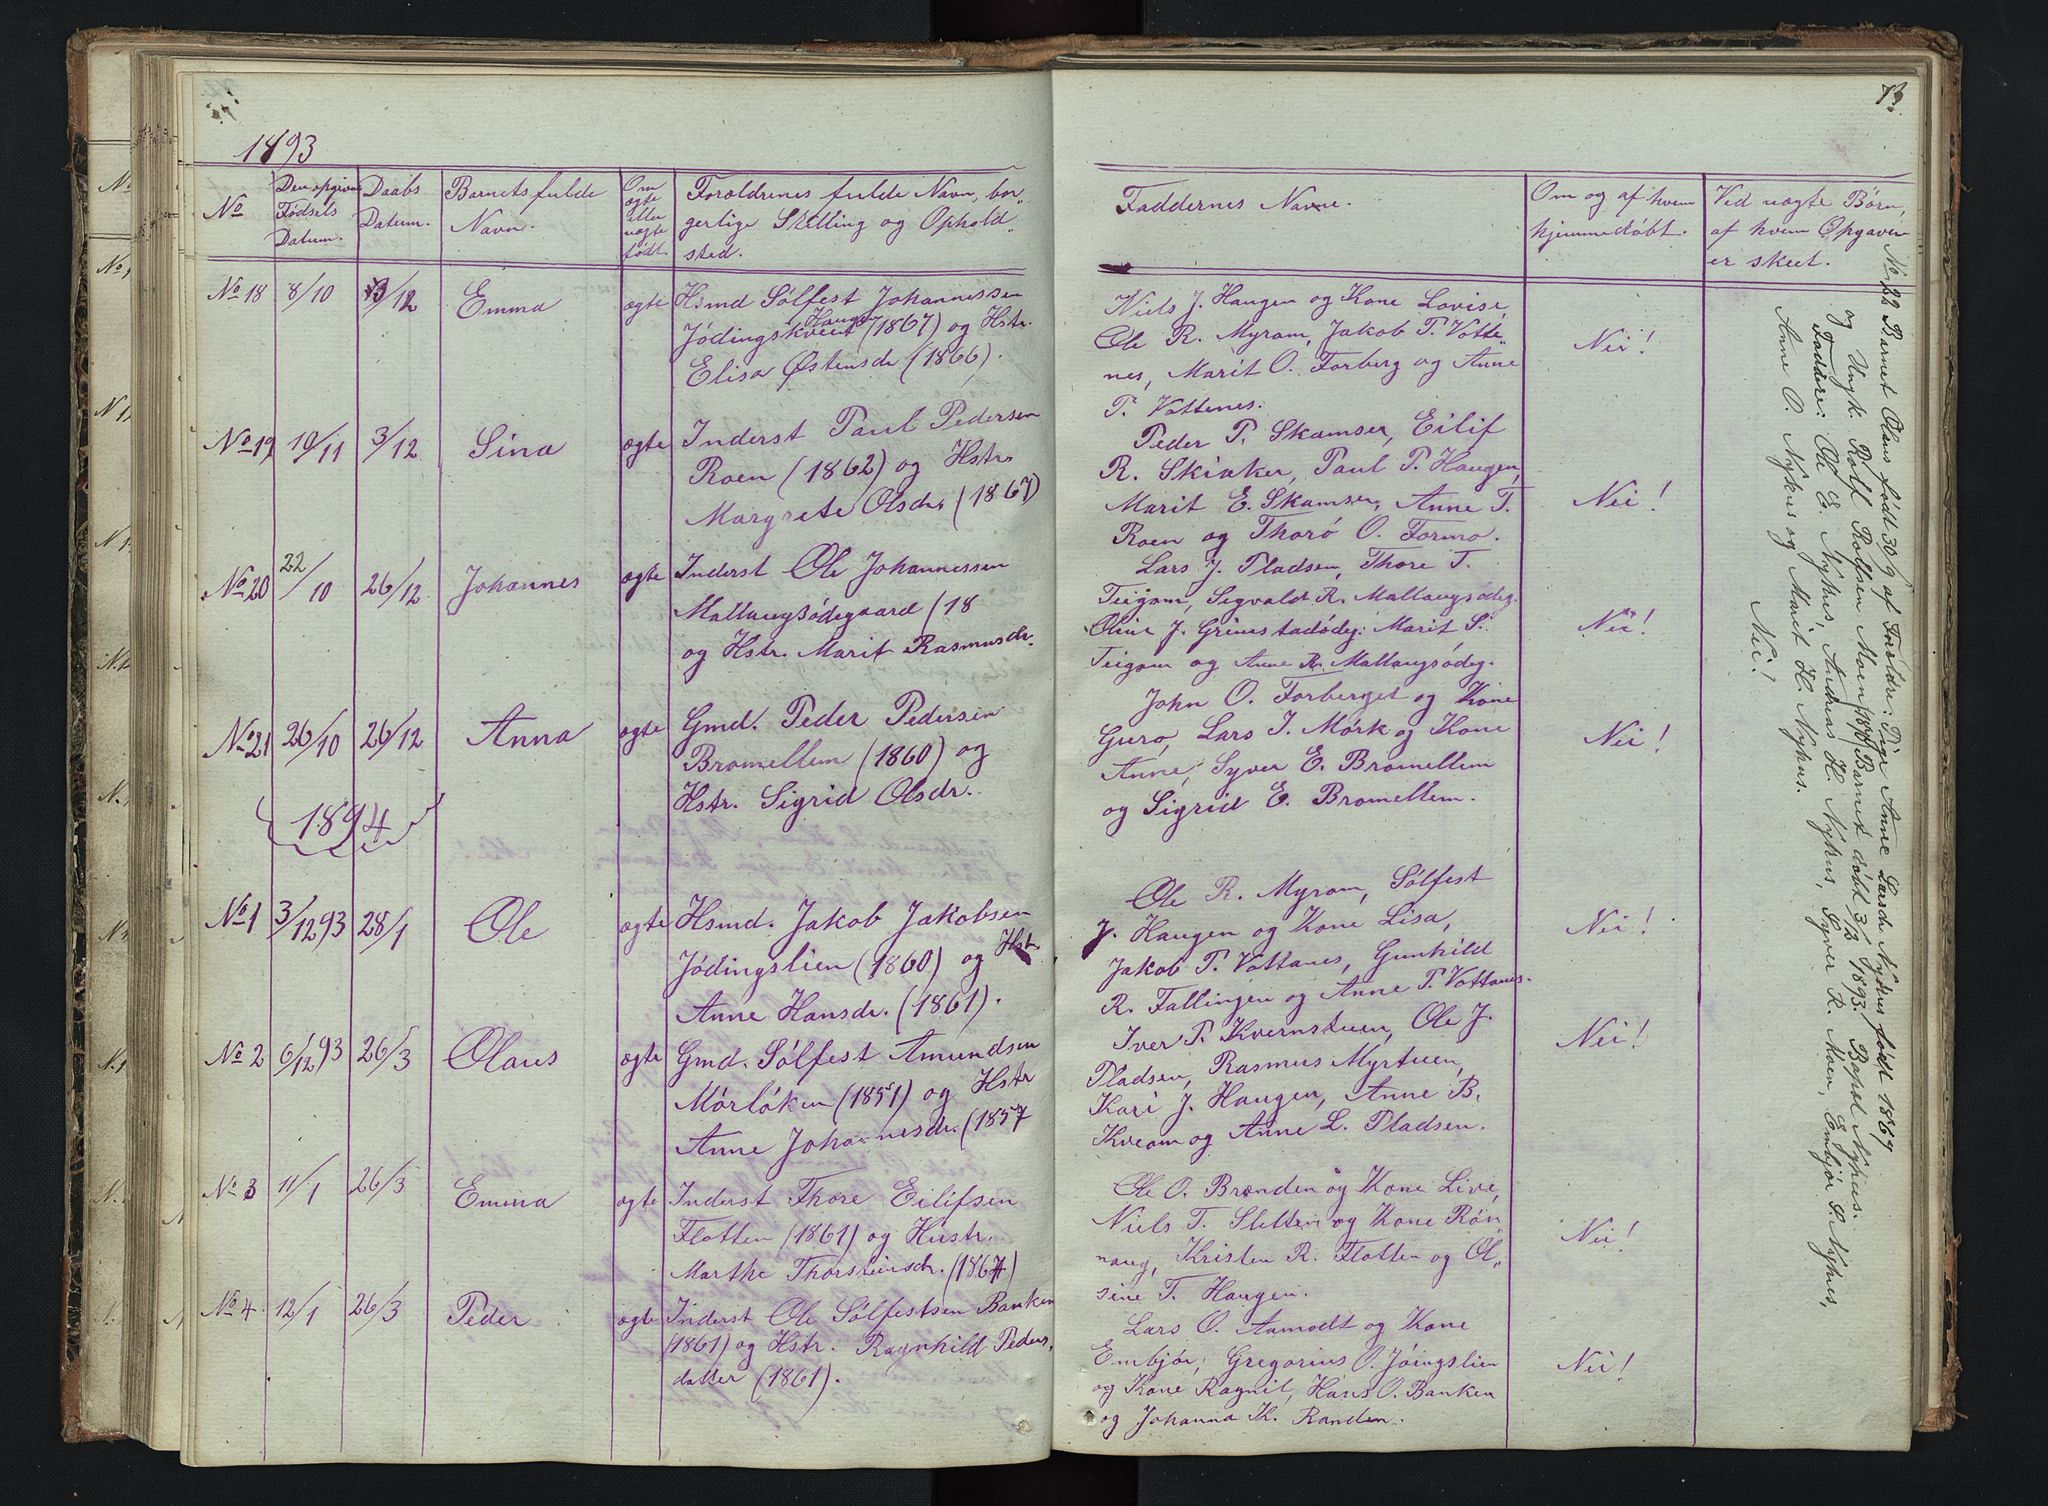 1893
73.
No
Den opgivne Fødsels Datum.
Daabs Datum.
Barnets fulde Navn.
Om ægte eller uægte født.
Forældrenes fulde Navn, bor„
gerlige Stilling og Ophold„
sted.
Faddernes Navne.
Om og af hvem
hjemmedøbt.
Ved uægte Børn,
af hvem Opgaven
er skeet.
No 18 8/10 3/12 Emma ægte Hsmd Sølfest Johannessen
Jødingskveen Haugen (1867) og Hstr.
Elisa Østensdr (1866).
Niels J. Haugen og Kone Lovise,
Ole R. Myrom, Jakob T. Votte„
nes, Marit O. Forberg og Anne
T. Vottenes.
Nei!
No 19 10/11 3/12 Sina ægte Inderst Paul Pedersen
Roen (1862) og Hstr.
Margrete Olsdr. (1867)
Peder P. Skamser, Eilif
R. Skiaker, Paul P. Haugen,
Marit E. Skamser, Anne T.
Roen og Thorø O. Formo.
Nei!
No 20 22/10 26/12 Johannes ægte Inderst Ole Johannessen
Mallangsødegaard (18
og Hstr. Marit Rasmusdr.
Lars J. Pladsen, Thore T.
Teigom, Sigvald R. Mallangsødeg.
Oline J. Grimstadødeg: Marit S.
Teigom og Anne R. Mallangsødeg.
Nei!
No 21 26/10 26/12 Anna ægte Gmd. Peder Pedersen
Bromellem (1860) og
Hstr. Sigrid Olsdr.
John O. Forberget og Kone
Guro, Lars I. Mørk og Kone
Anne, Syver E. Bromellem
og Sigrid E. Bromellem.
Nei!
1894
No 1 3/12 93 28/1 Ole ægte Hsmd. Jakob Jakobsen
Jødingslien (1860) og Hstr
Anne Hansdr. (1861).
Ole R. Myrom, Sølfest
J. Haugen og Kone Lisa,
Jakob T. Vottanes, Gunhild
R. Fallingen og Anne T. Vottanes.
Nei!
No 2 6/12 93 26/3 Olaus ægte Gmd. Sølfest Amundsen
Mørløken (1851) og Hstr
Anne Johannesdr. (1857
Iver P. Kvernstuen, Ole J.
Pladsen, Rasmus Myrtuen,
Kari J. Haugen, Anne B.
Kveom og Anne L. Pladsen.
Nei!
No 3 11/1 26/3 Emma ægte Inderst Thore Eilifsen
Flotten (1861) og Hustr.
Marthe Thorsteinsdr. (1864)
Ole O. Brenden og Kone Live,
Niels T. Sletten og Kone Røn„
naug, Kristen R. Flotten og Ol„
sine T. Haugen.
Nei!
No 4 12/1 26/3 Peder ægte Inderst Ole Sølfestsen Banken
(1861) og Hstr. Ragnhild Peders„
datter (1861).
Lars O. Aamodt og Kone
Embjør, Gregorius O. Jøingslien
og Kone Ragnil, Hans O. Banken
og Johanna H. Randen.
Nei!
No 22 Barnet Olaus født 30/9 af Foreldre: Pige Anne Larsdr Nyhus født 1867
og Ungk. Rolf Rolfsen Moen Barnet døbt 3/12 1893.
Faddere: Ole E. Nyhus, Andreas H. Nyhus, Syver R. Moen, Embjør S. Nyhus,
Anne O. Nyhus og Marit H. Nyhus.
Nei!